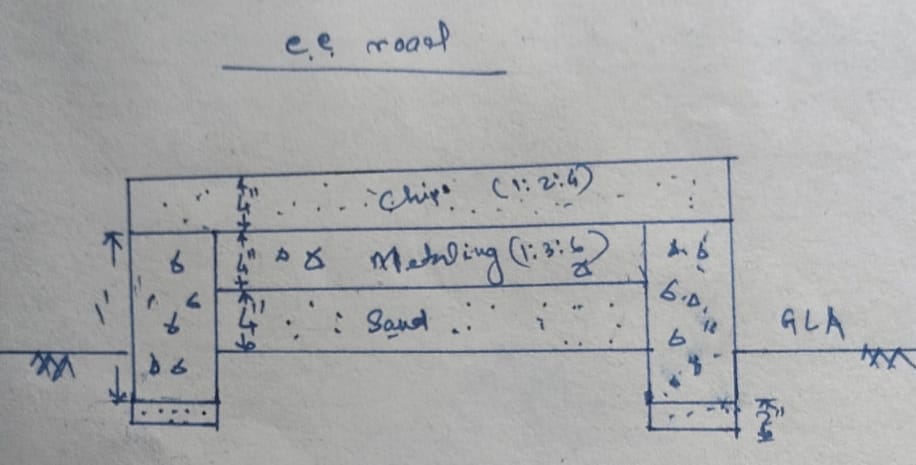 c.c. road
4" Chips (1:2:4)
4" Metaling (1:3:6)
1'
4" Sand
GLA
2"